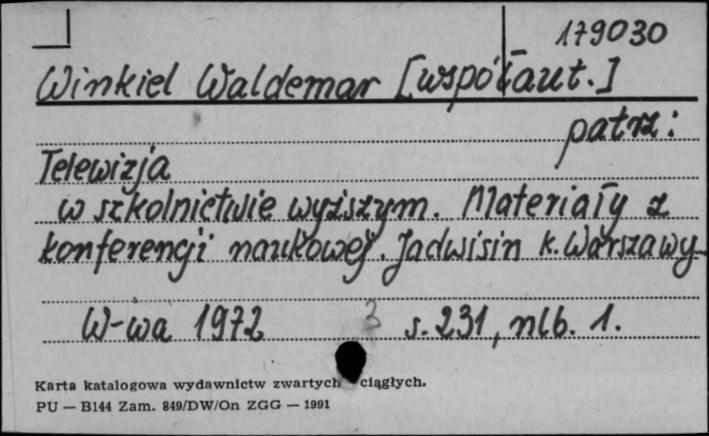 179030
Winkiel Waldemar [współaut.]
patrz:
Telewizja
w szkolnictwie wyższym. Materiały z
konferencji naukowej. Jadwisin k. Warszawy
W-wa 1972 3 s. 231, nlb. 1.
Karta katalogowa wydawnictw zwartych ciągłych.
PU — B144 Zam. 849/DW/On ZGG — 1991